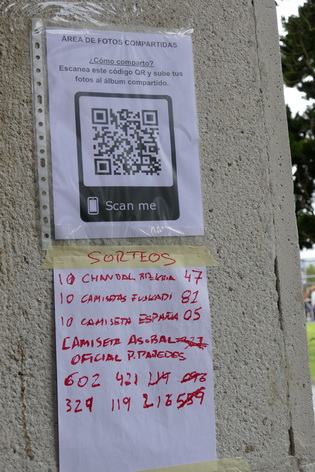 ÁREA DE FOTOS COMPARTIDAS
¿Cómo comparto?
Escanea este código QR y sube tus
fotos al álbum compartido.
Scan me
SORTEOS
10 CHANDAL BIZKAIA 47
10 CAMISETAS EUSKADI 81
10 CAMISETA ESPAÑA 05
CAMISETA ASOBAL
OFICIAL P. PAREDES
602 421 219 696
329 119 216 559